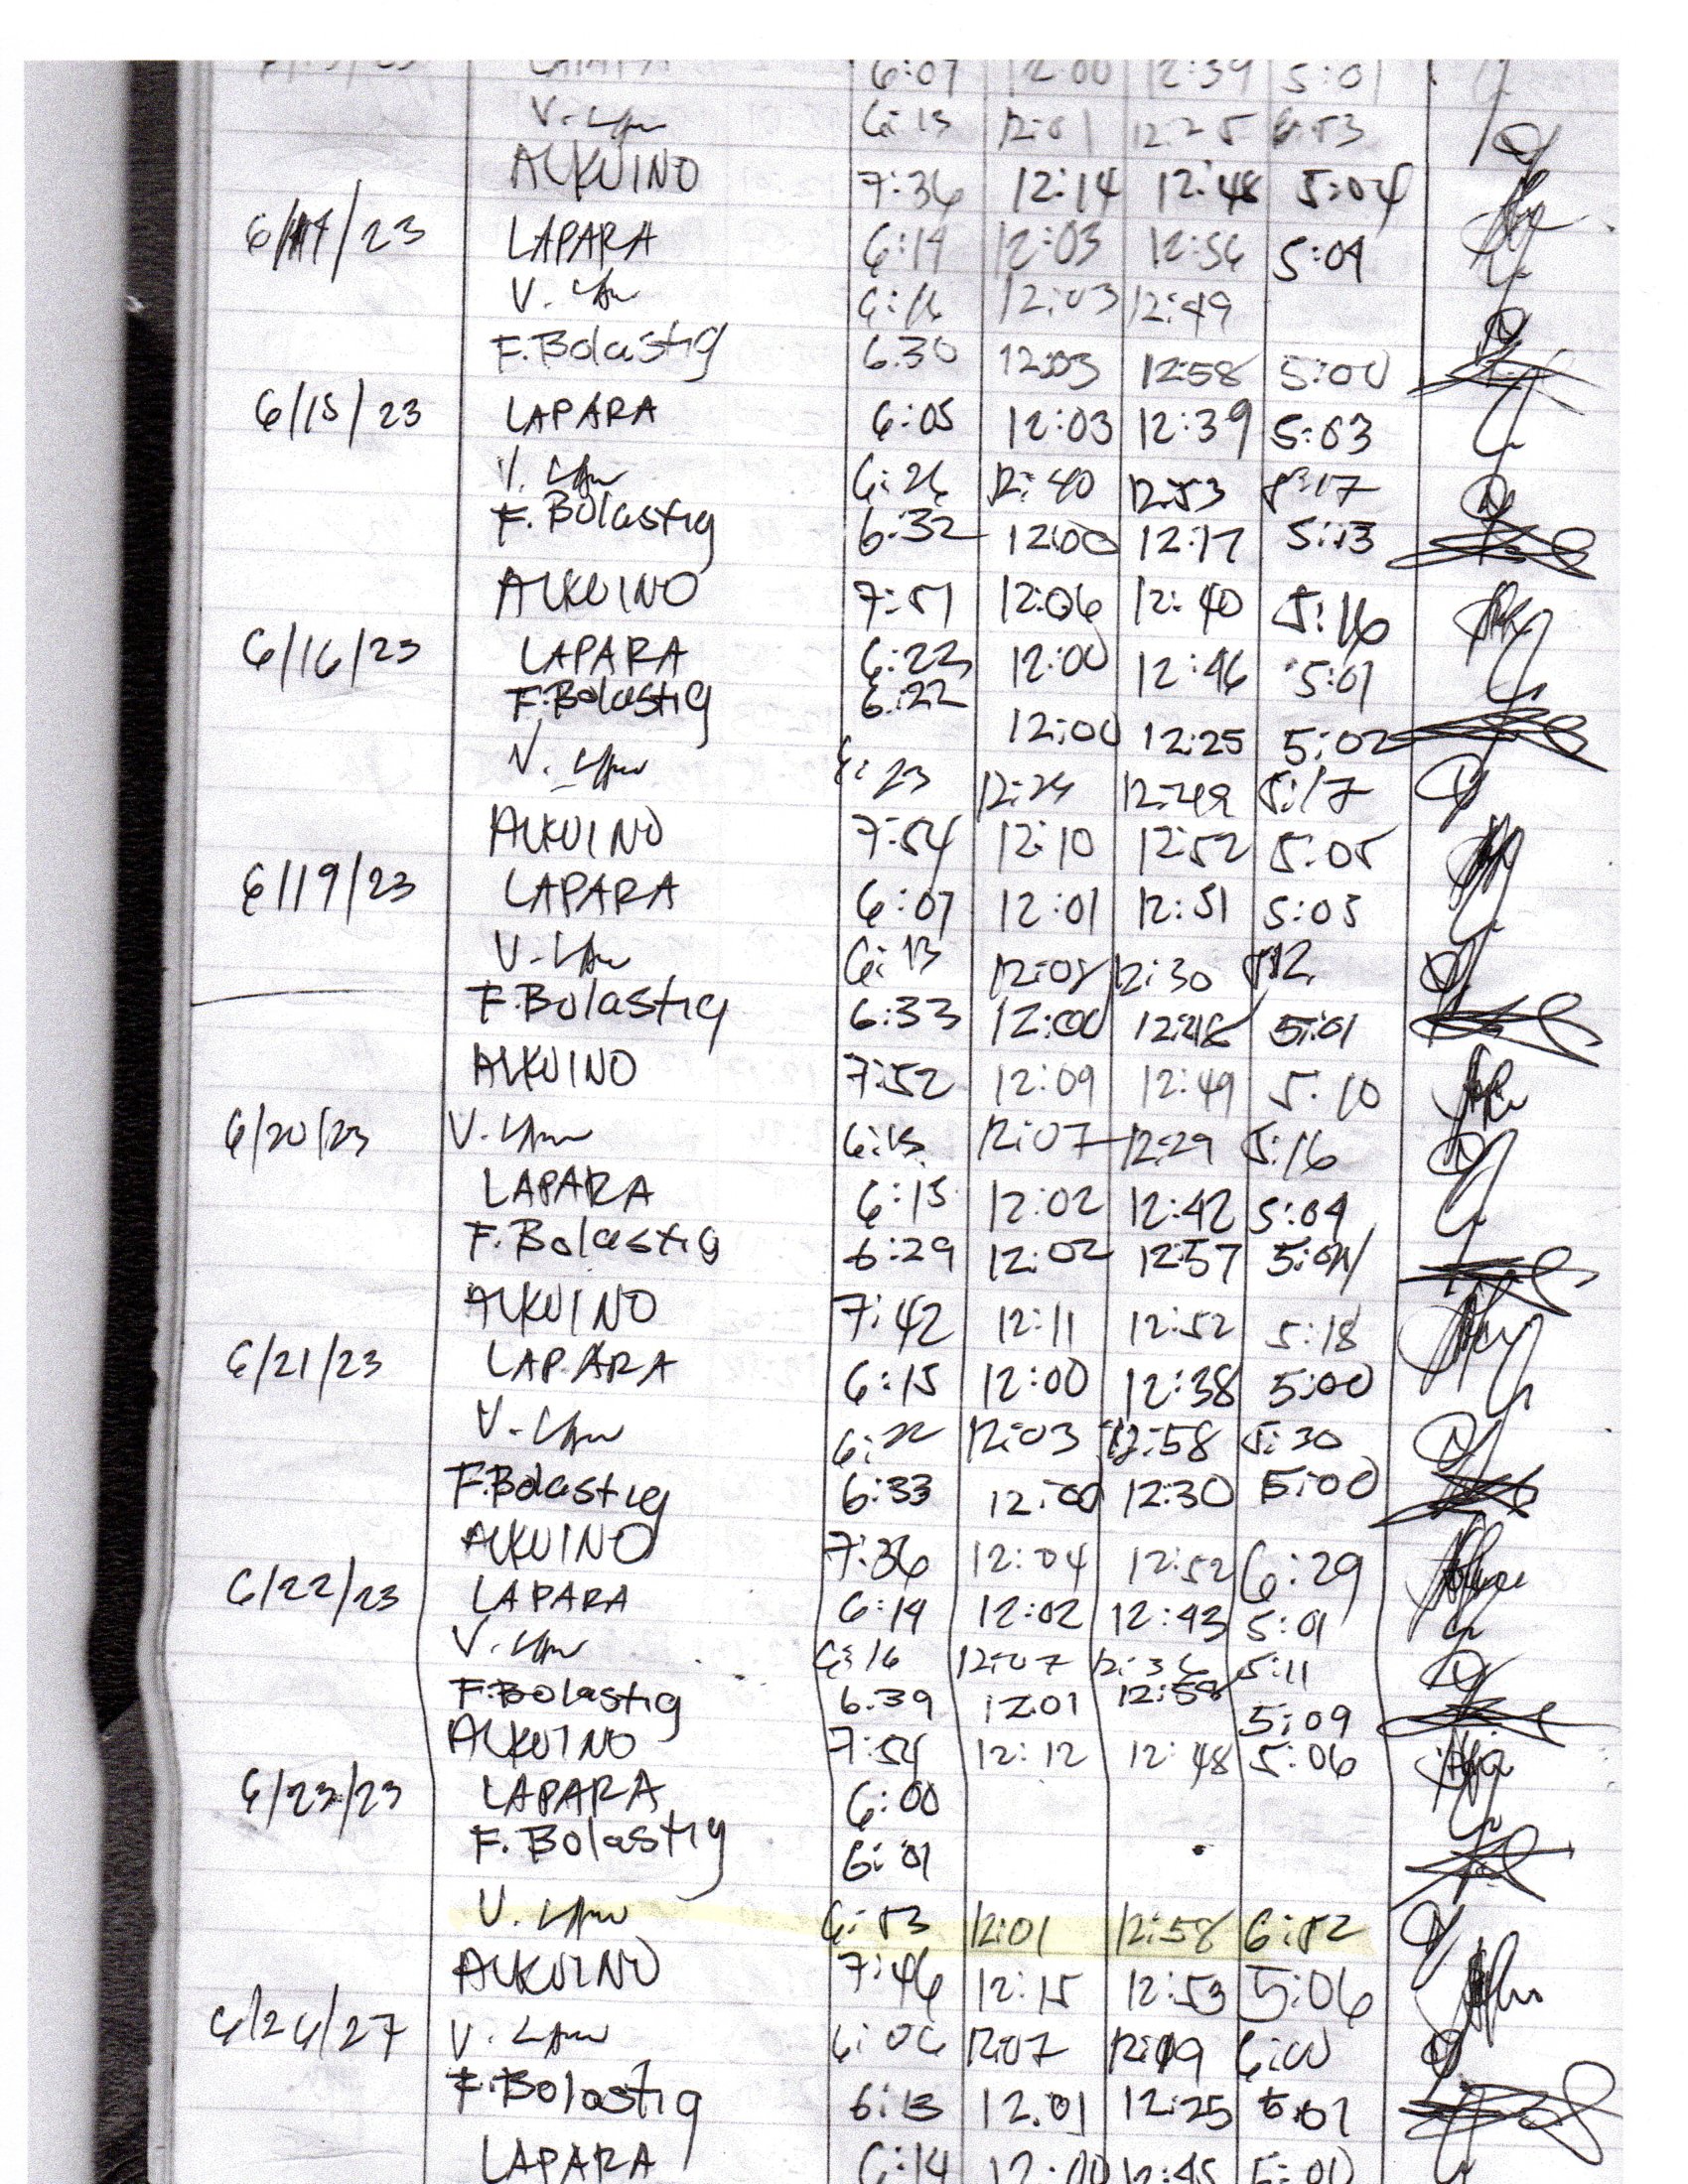 LAPARA 6:07 12:00 12:39 5:01
V. 6:13 12:01 12:25
ALKUINO 7:36 12:14 12:48 5:04
6/14/23 LAPARA 6:14 12:03 12:56 5:04
V. 6:16 12:03 12:49
F.Bolastig 6.30 12:03 12:58 5:00
6/15/23 LAPARA 6:05 12:03 12:39 5:03
V. 6:26 12:40 12:53 5:17
F. Bolastig 6:32 12:00 12:17 5:13
ALKUINO 7:51 12:06 12:40 5:16
6/16/23 LAPARA 6:22 12:00 12:46 5:01
F.Bolastig 6:22 12:00 12:25 5:02
V. 6:23 12:24 12:49 5:17
ALKUINO 7:54 12:10 12:52 5:05
6/19/23 LAPARA 6:07 12:01 12:51 5:05
V. 6:13 12:08 12:30 5:12
F.Bolastig 6:33 12:00 12:48 5:01
ALKUINO 7:52 12:09 12:49 5:10
6/20/23 V. 6:15 12:07 12:29 5:16
LAPARA 6:15 12:02 12:42 5:04
F. Bolastig 6:29 12:02 12:57
ALKUINO 7:42 12:11 12:52 5:18
6/21/23 LAPARA 6:15 12:00 12:38 5:00
V. 6:22 12:03 12:58 5:30
F.Bolastig 6:33 12:00 12:30 5:00
ALKUINO 7:36 12:04 12:52 6:29
6/22/23 LAPARA 6:14 12:02 12:43 5:01
V. 6:16 12:07 12:36 5:11
F.Bolastig 6.39 12.01 12:58 5:09
ALKUINO 7:54 12:12 12:48 5:06
6/23/23 LAPARA 6:00
F. Bolastig 6:01
V. 6:53 12:01 12:58 6:52
ALKUINO 7:46 12:15 12:53 5:06
6/26/27 V. 6:06 12:07 12:49 6:00
F.Bolastig 6:13 12.01 12:25 5:01
LAPARA 6:14 12:00 12:45 5:00